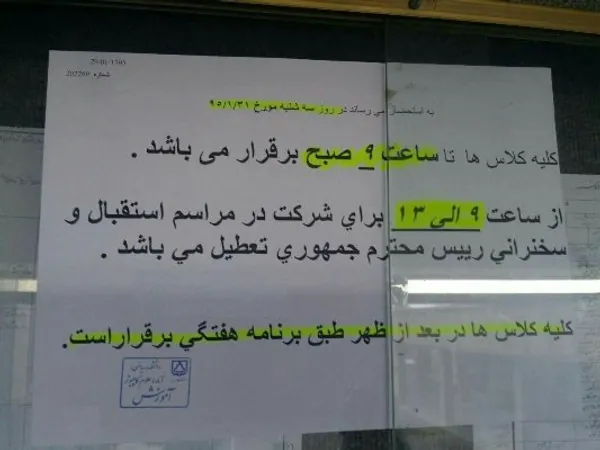 شماره 202269
به استحضار می رساند در روز سه شنبه مورخ ۹۵/۱/۳۱
کلیه کلاس ها تا ساعت ۹ صبح برقرار می باشد .
از ساعت ۹ الی ۱۳ براي شرکت در مراسم استقبال و
سخنراني رییس محترم جمهوري تعطیل مي باشد .
کلیه کلاس ها در بعد از ظهر طبق برنامه هفتگي برقراراست.
آموزش